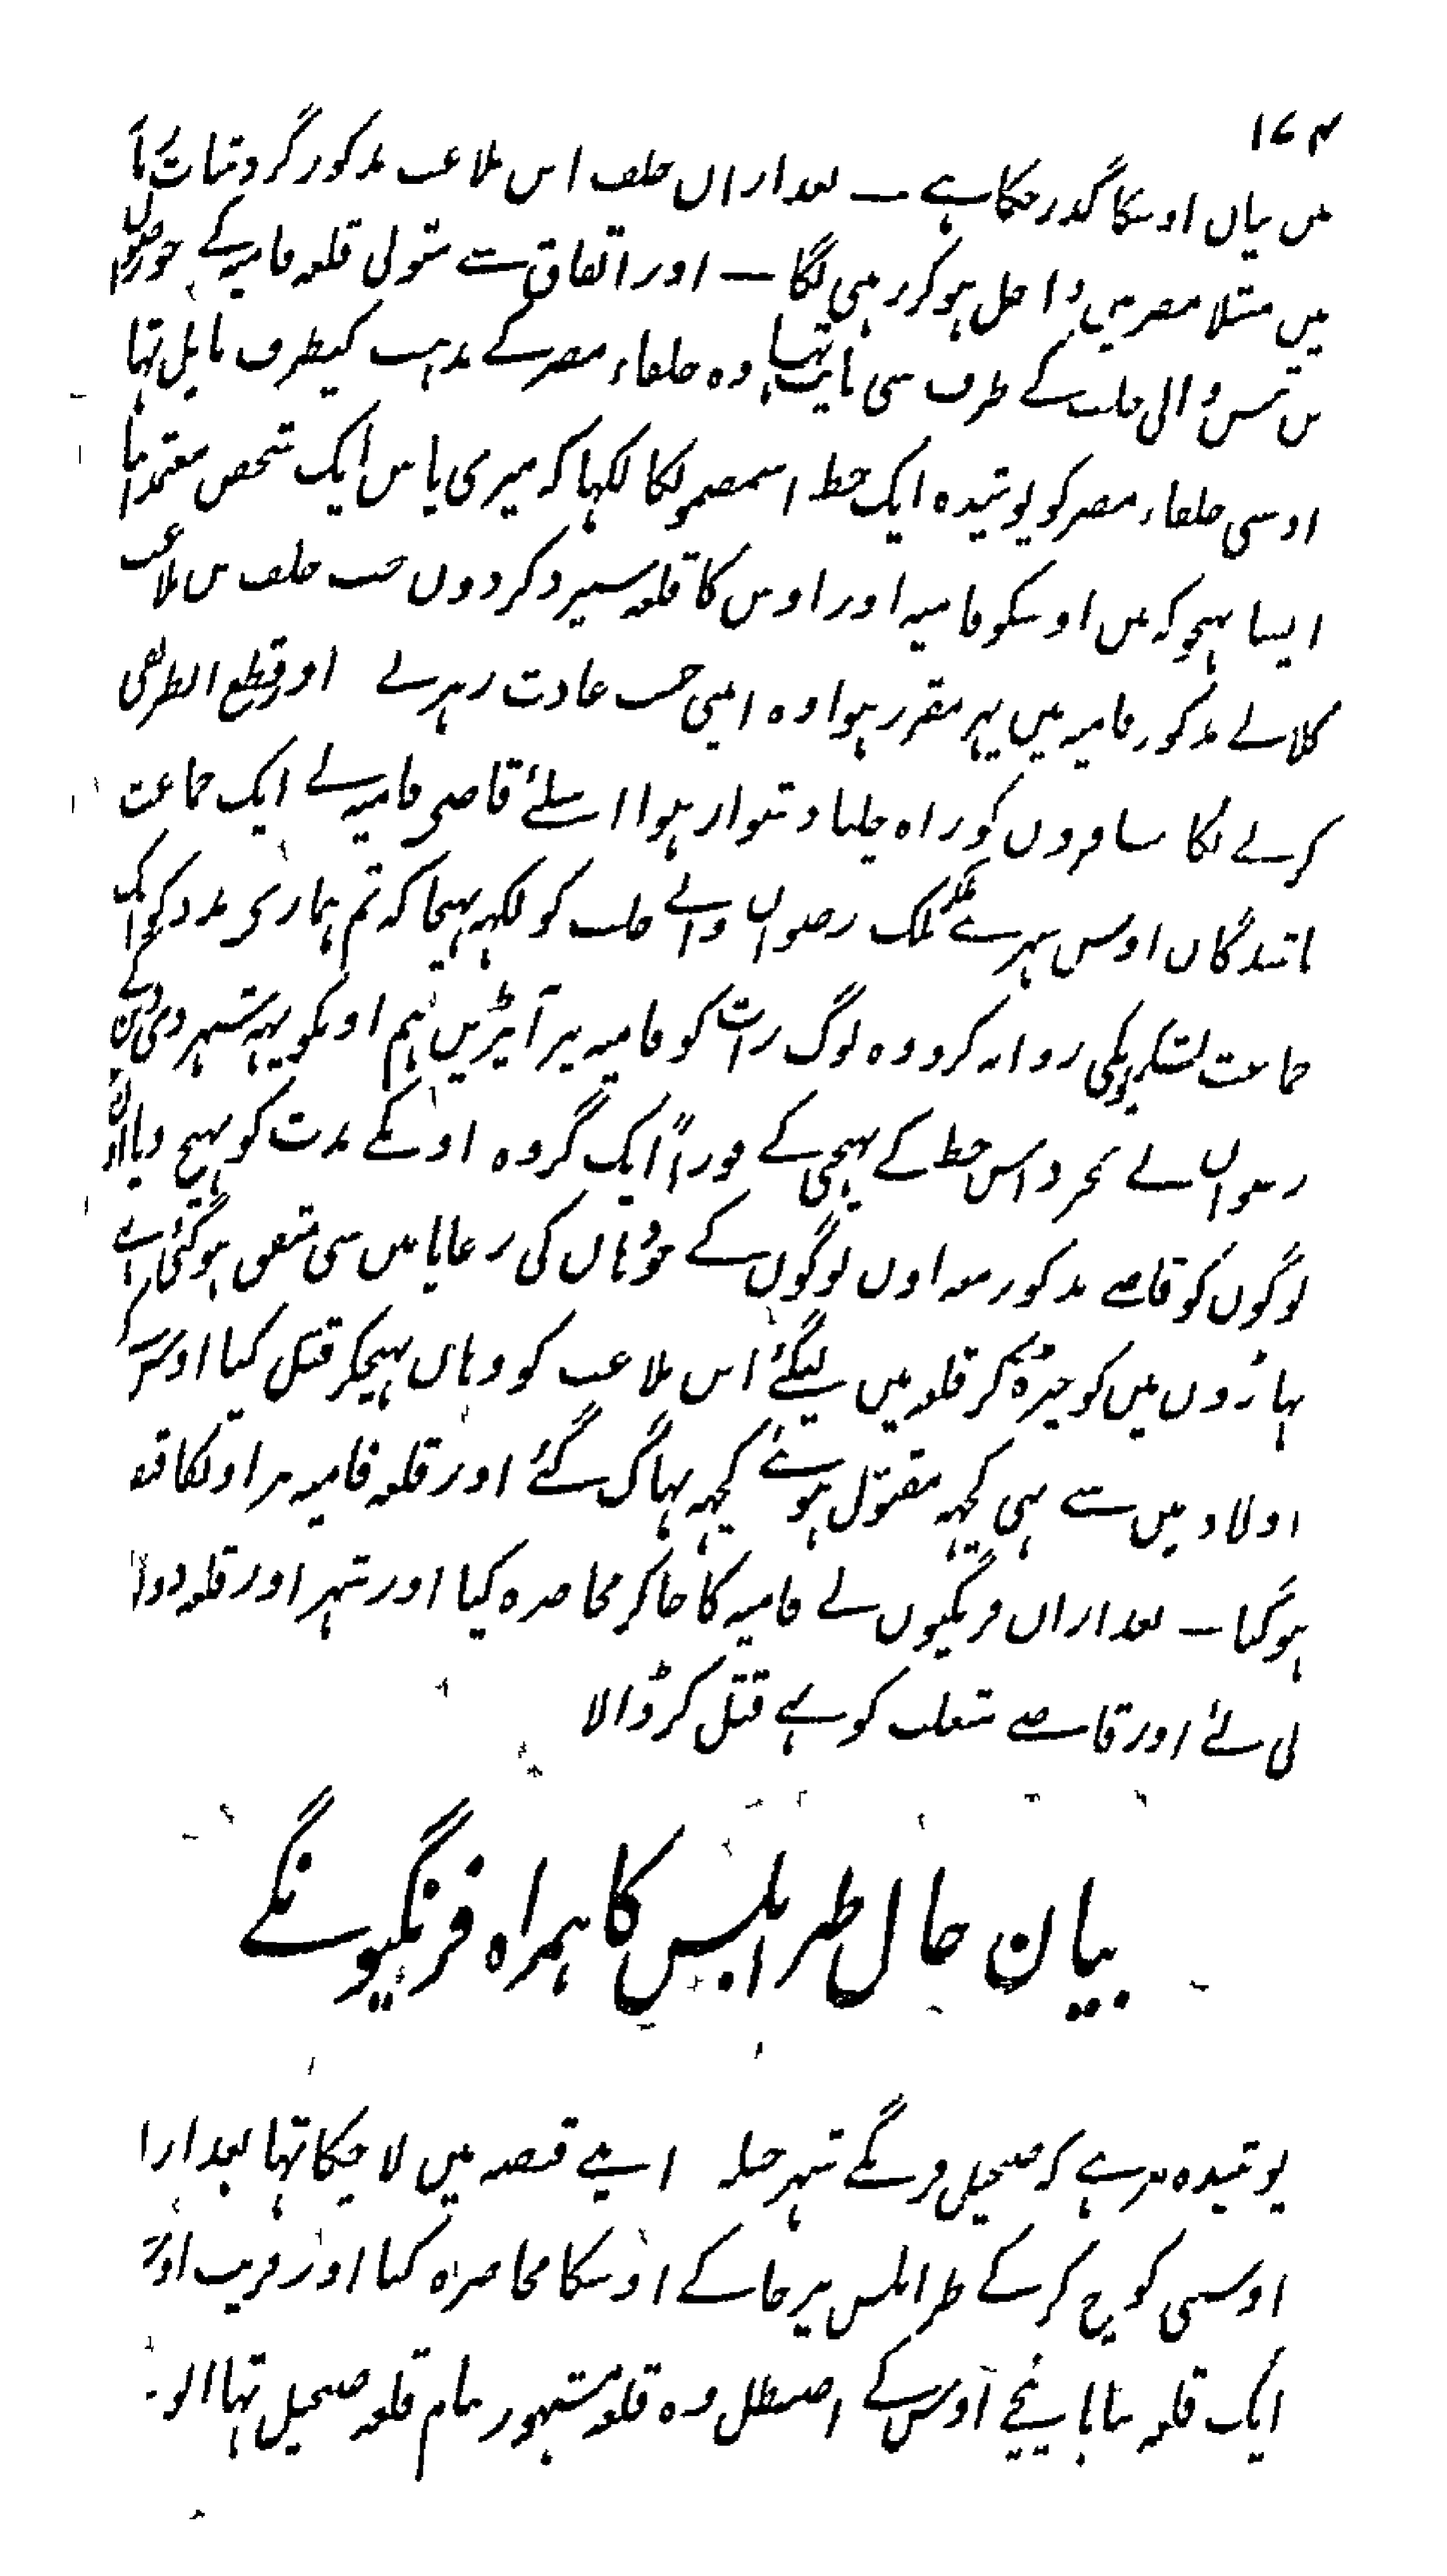 ۱۷۴
میں بیان اوسکا گذر چکا ہے ــ بعد ازان خلف ابن ملاعب مذکور گردشہائے
میں مبتلا مصر میں داخل ہو کر رہنی لگا ــ اور اتفاق سے متولی قلعہ فامیہ کے جو رضوان
بن تتش والی حلب کے طرف سی نایب تہا وہ خلفاء مصر کے مذہب کیطرف مایل تہا
اوسی خلفاء مصر کو پوشیدہ ایک خط اسمضمونکا لکہا کہ میری پاس ایک شخص معتمد اپنا
ایسا بہیجو کہ میں اوسکو فامیہ اور اوس کا قلعہ سپرد کر دوں جب خلف بن ملاعب
کلابے مذکور فامیہ میں پہر مقرر ہوا وہ اپنی حسب عادت رہزنے اور قطع الطریقی
کرنے لگا مسافروں کو راہ چلنا دشوار ہوا اسلئے قاضی فامیہ نے ایک جماعت
باشندگان اوس شہر سے ملکر ملک رضوان والے حلب کو لکہہ بہیجا کہ تم ہماری مدد کو ایک
جماعت لشکریونکی روانہ کرو وہ لوگ رات کو فامیہ پر آپڑیں ہم اونکو یہہ شہر دی دینگے
رضوان نے بمجرد اس خط کے پہنچی کے فوراً ایک گروہ اونکے مدت کو بہیج دیا اون
لوگوں کو قاضے مذکور معہ اون لوگوں کے جو وہاں کی رعایا میں سی متفق ہو گئی تہے
پہاڑوں میں کو چڑہکر قلعہ میں لیگئے ابن ملاعب کو وہاں پہنچکر قتل کیا اوسکے
اولاد میں سے بہی کچہہ مقتول ہوئے کچہہ بہاگ گئے اور قلعہ فامیہ پر اونکا قبضہ
ہو گیا ــ بعد ازان فرنگیوں نے فامیہ کا جا کر محاصرہ کیا اور شہر اور قلعہ دونوں
لی لئے اور قاضے متغلب کو بہے قتل کر ڈالا
بیان حال طرابلس کا ہمراہ فرنگیونکے
پوشیدہ نرہے کہ صنجیل فرنگے شہر جبلہ اپنے قبضہ میں لا چکا تہا بعد ازان
اوسسی کوچ کر کے طرابلس پر جا کے اوسکا محاصرہ کیا اور قریب اوسکے
ایک قلعہ بنایا نیچے اوس کے اصطبل وہ قلعہ مشہور بنام قلعہ صنجیل تہا ابو